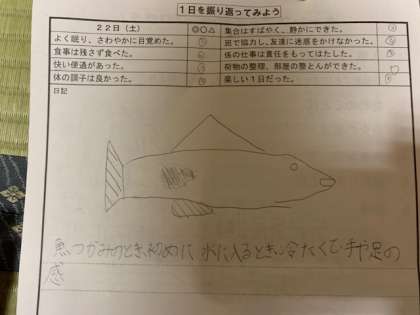 1日を振り返ってみよう
22日(土) ◎○△
よく眠り、さわやかに目覚めた。
食事は残さず食べた。
快い便通があった。
体の調子は良かった。
集合はすばやく、静かにできた。
班で協力し、友達に迷惑をかけなかった。
係の仕事は責任をもってはたした。
荷物の整理、部屋の整とんができた。
楽しい1日だった。
日記
魚つかみのとき初めに水に入るとき冷たくて手や足の
感